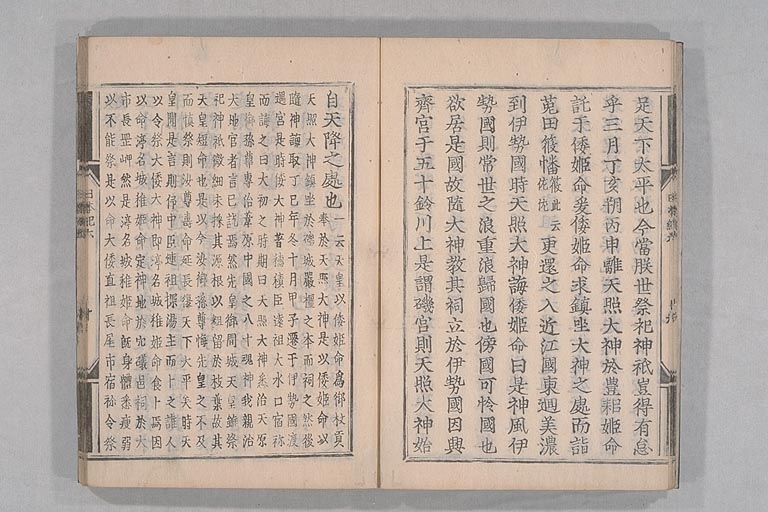 足天下太平也今當朕世祭祀神祇豈得有怠
乎三月丁亥朔丙申離天照大神於豐耜姬命
託于倭姬命爰倭姬命求鎮坐大神之處而詣
菟田筱幡筱此云佐佐更還之入近江國東廻美濃
到伊勢國時天照大神誨倭姬命曰是神風伊
勢國則常世之浪重浪歸國也傍國可怜國也
欲居是國故隨大神教其祠立於伊勢國因興
齋宮于五十鈴川上是謂磯宮則天照大神始
自天降之處也一云天皇以倭姬命爲御杖貢
奉於天照大神是以倭姬命以
天照大神鎮坐於磯城嚴橿之本而祠之然後
隨神誨取丁巳年冬十月甲子遷于伊勢國渡
遇宮是時倭大神著穗積臣遠祖大水口宿祢
而誨之曰大初之時期曰天照大神悉治天原
皇御孫尊專治葦原中國之八十魂神我親治
大地官者言已訖焉然先皇御間城天皇雖祭
祀神祇微細未探其源根以粗留於枝葉故其
天皇短命也是以今汝御孫尊悔先皇之不及
而愼祭則汝尊壽命延長復天下太平矣時天
皇聞是言則仰中臣連祖探湯主而卜之誰人
以令祭大倭大神即渟名城稚姬命食卜焉因
以命渟名城稚姬命定神地於穴磯邑祠於大
市長岡岬然是渟名城稚姬命既身體悉瘦弱
以不能祭是以命大倭直祖長尾市宿祢令祭